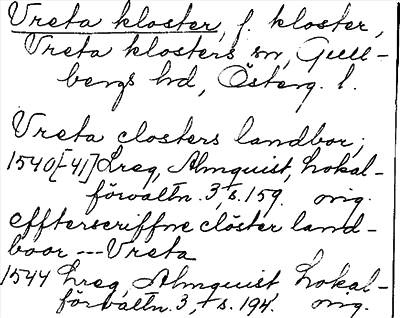 Vreta kloster, f. kloster,
Vreta klosters sn, Gull-
bergs hd, Österg. l.
Vreta closters landbor;
1540[-41] Lreg, Almquist, Lokal-
förvaltn. 3, s. 159. orig.
effterscriffne clöster land-
boor --- Vreta
1544 Lreg, Almquist Lokal-
förvaltn. 3, s. 194. orig.